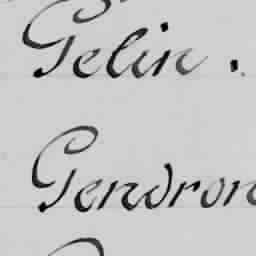 Gelin.
Gendron